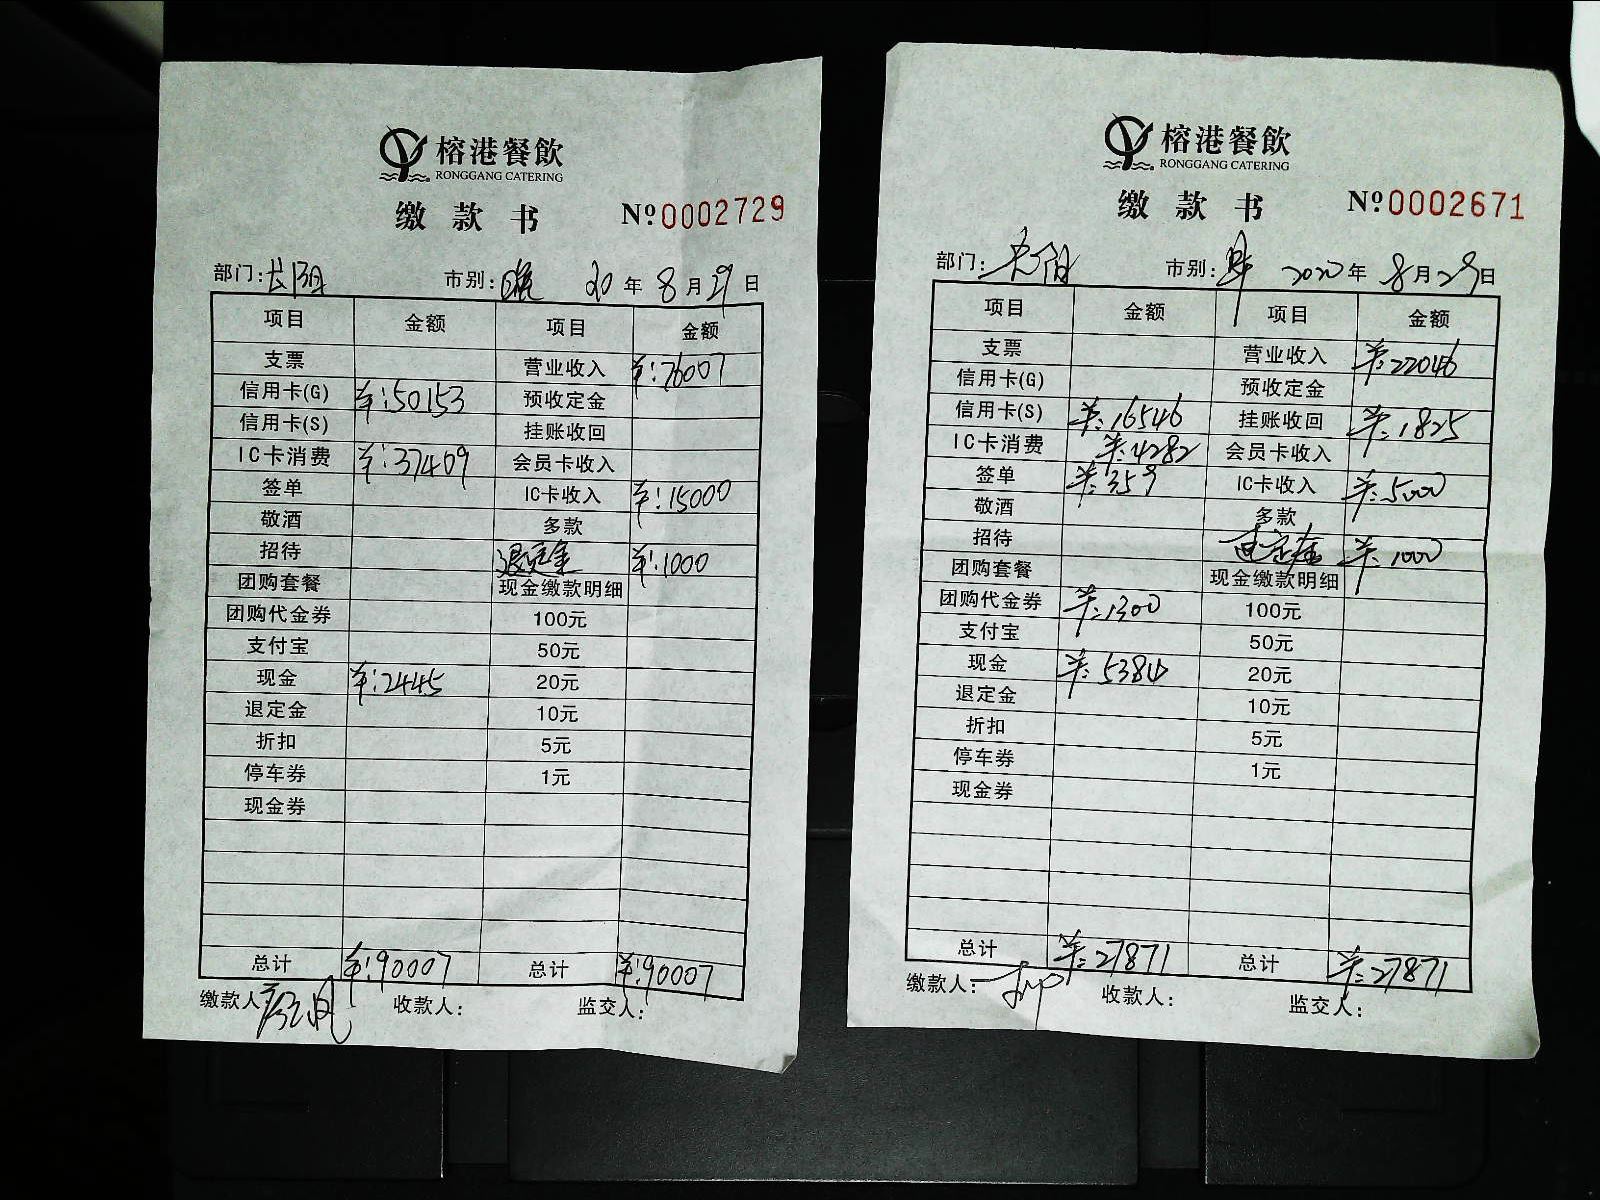 榕港餐飲
RONGGANG CATERING
缴款书 Nº0002729
部门:长阳 市别:晚 20年8月29日
项目 金额 项目 金额
支票 营业收入 ¥:76007
信用卡(G) ¥:50153 预收定金
信用卡(S) 挂账收回
IC卡消费 ¥:37409 会员卡收入
签单 IC卡收入 ¥:15000
敬酒 多款
招待 退定金 ¥:1000
团购套餐 现金缴款明细
团购代金券 100元
支付宝 50元
现金 ¥:2445 20元
退定金 10元
折扣 5元
停车券 1元
现金券
总计 ¥:90007 总计 ¥:90007
缴款人: 收款人: 监交人:
榕港餐飲
RONGGANG CATERING
缴款书 Nº0002671
部门:长阳 市别: 2020年8月29日
项目 金额 项目 金额
支票 营业收入 ¥:22046
信用卡(G) 预收定金
信用卡(S) ¥:16546 挂账收回 ¥:1825
IC卡消费 ¥:4282 会员卡收入
签单 ¥:359 IC卡收入 ¥:5000
敬酒 多款
招待 退定金 ¥:1000
团购套餐 现金缴款明细
团购代金券 ¥:1300 100元
支付宝 50元
现金 ¥:5384 20元
退定金 10元
折扣 5元
停车券 1元
现金券
总计 ¥:27871 总计 ¥:27871
缴款人: 收款人: 监交人: